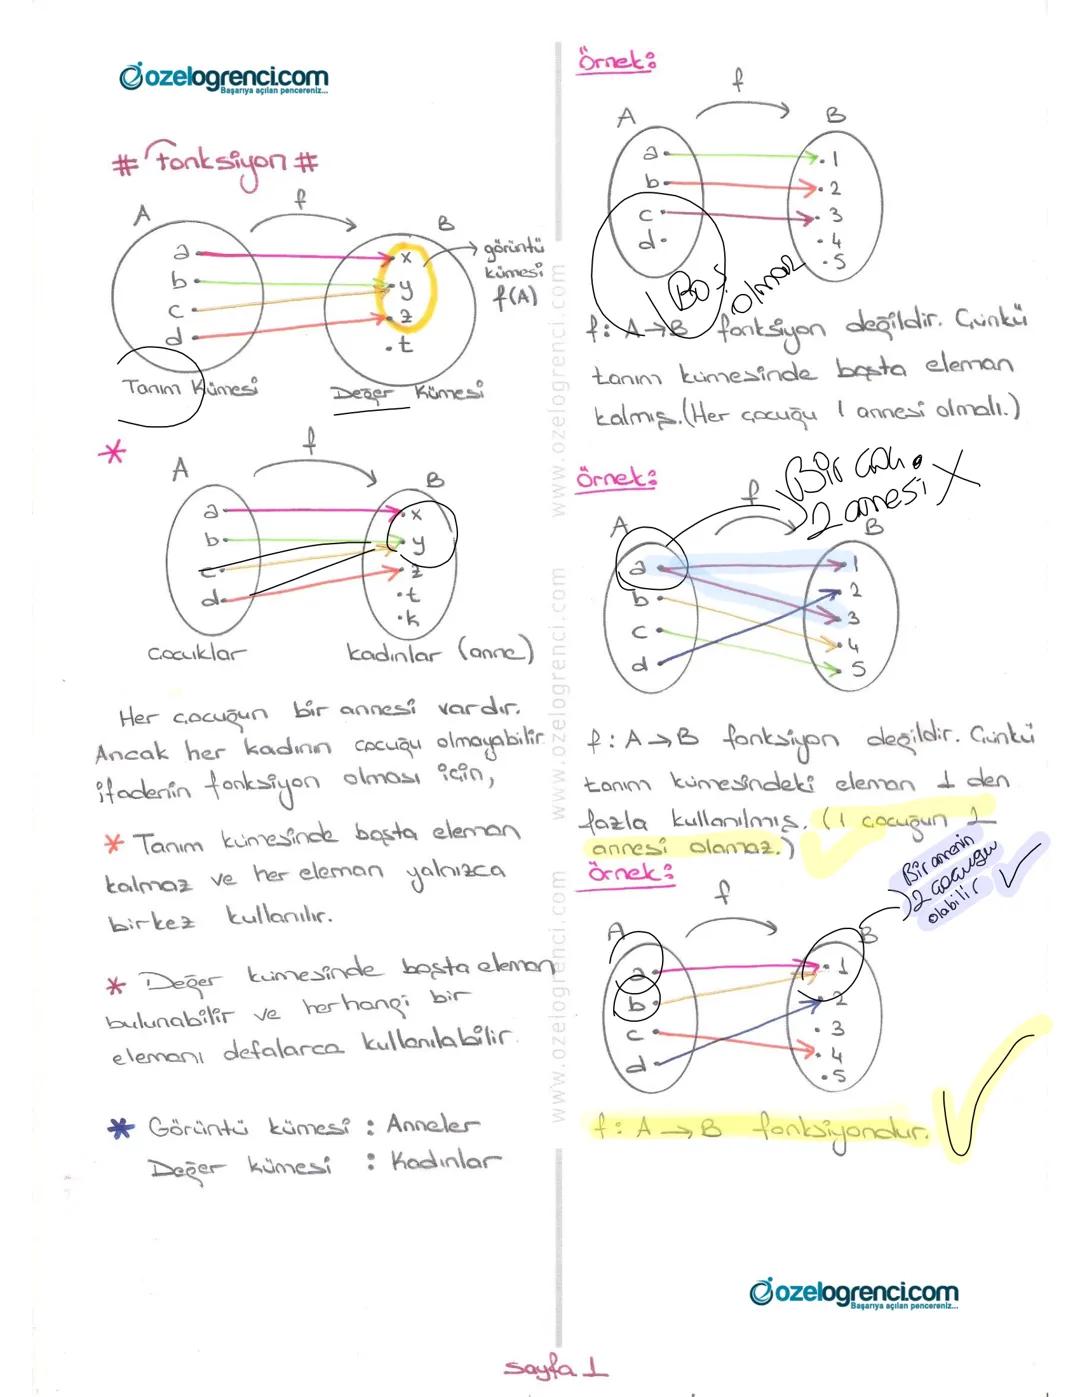 ozelogrenci.com
Başarıya açılan pencereniz...
# Fonksiyon #
f
A
B
a
b
c
d
x
y
z
t
görüntü
kümesi
f(A)
Tanım Kümesi
Değer Kümesi
*
f
A
B
a
b
c
d
x
y
z
t
k
Çocuklar
kadınlar (anne)
Her çocuğun bir annesi vardır.
Ancak her kadının çocuğu olmayabilir
ifadenin fonksiyon olması için,
* Tanım kümesinde boşta eleman
kalmaz ve her eleman yalnızca
bir kez kullanılır.
* Değer kümesinde boşta eleman
bulunabilir ve herhangi bir
elemanı defalarca kullanılabilir.
* Görüntü kümesi : Anneler
Değer kümesi : Kadınlar
Örnek:
f
A
B
a
b
c
d
1
2
3
4
5
Boş
olmaz
f: A→B fonksiyon değildir. Çünkü
tanım kümesinde boşta eleman
kalmış. (Her çocuğu 1 annesi olmalı.)
Örnek:
f
Bir
2 annesi X
A
B
a
b
c
d
1
2
3
4
5
f: A→B fonksiyon değildir. Çünkü
tanım kümesindeki eleman 1 den
fazla kullanılmış. (1 çocuğun 2
annesi olamaz.)
Örnek:
f
Bir annenin
2 çocuğu
olabilir
A
B
a
b
c
d
1
2
3
4
5
f: A→B fonksiyondur.
ozelogrenci.com
Başarıya açılan pencereniz...
www.ozelogrenci.com www.ozelogrenci.com www.ozelogrenci.com
sayfa 1